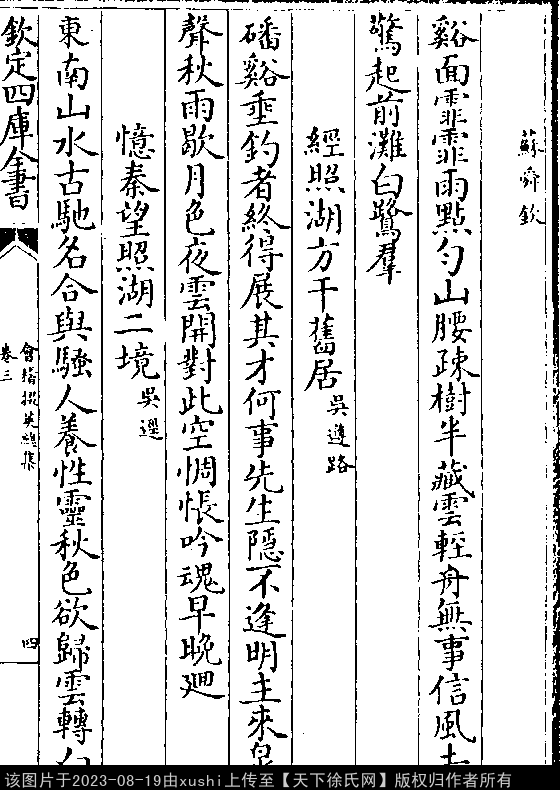 蘇舜欽
谿面霏霏雨點勻山腰疎樹半藏雲輕舟無事信風
驚起前灘白鷺羣
經照湖方干舊居 吳遵路
磻谿垂釣者終得展其才何事先生隱不逢明主來泉
聲秋雨歇月色夜雲開對此空惆悵吟魂早晚廻
憶秦望照湖二境 吳
東南山水古馳名合與騷人養性靈秋色欲歸雲轉
欽定四庫全書
會稽掇英總集
卷三
四
该图片于2023-08-19由xushi上传至【天下徐氏网】版权归作者所有